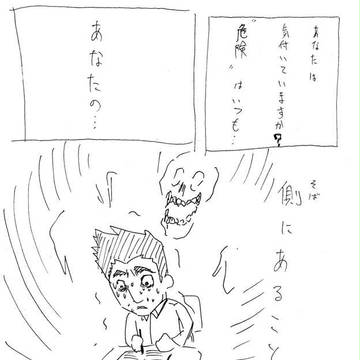 あなたは
気付いていますか?
“危険”はいつも…
あなたの…
側にあること
そば